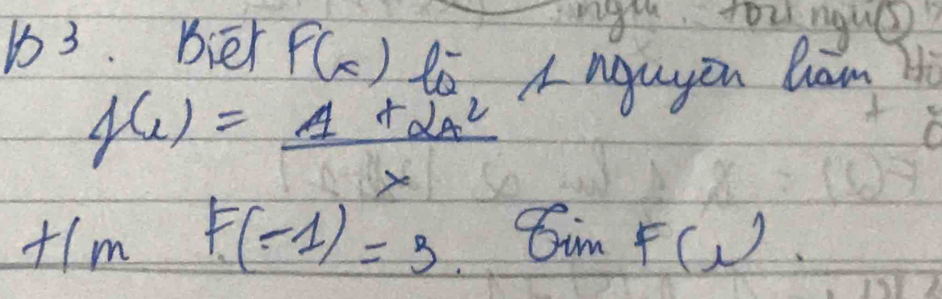 B3. Biết F(x) là 1 nguyên hàm
f(x) = \frac{1 + 2x^2}{x}
t/m F(-1) = 3. Tìm F(x).